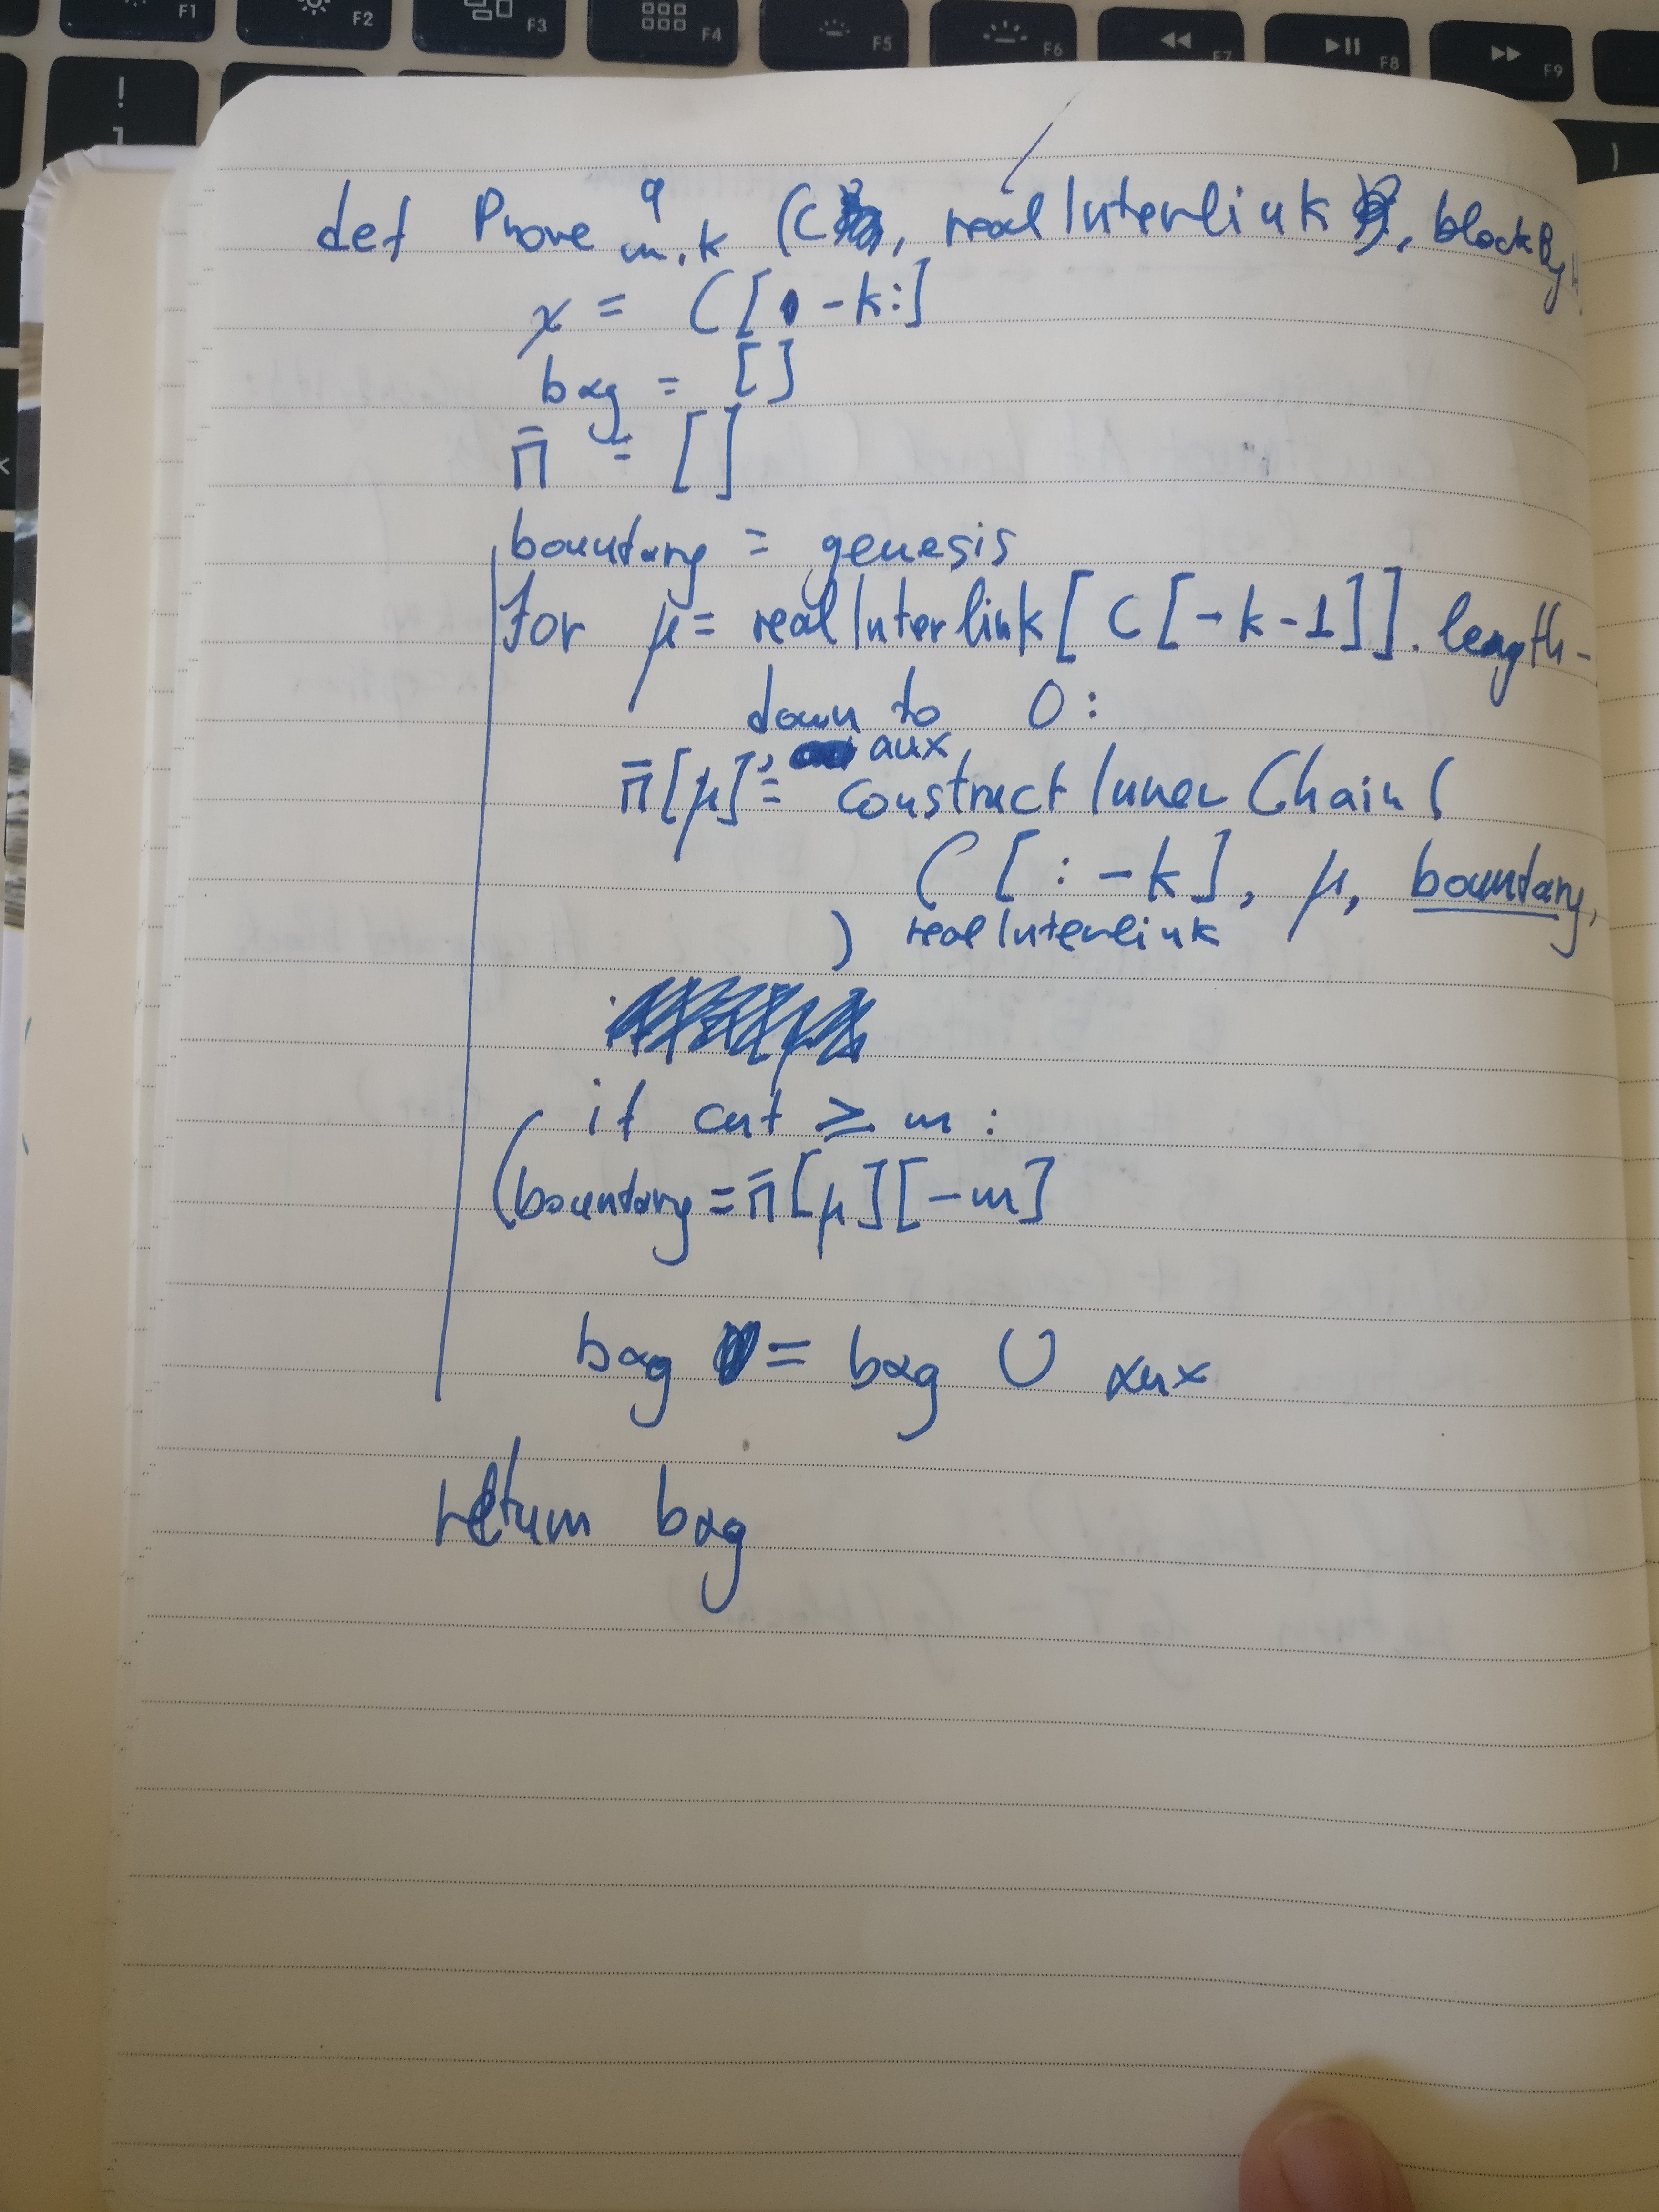 F1 F2 F3 F4 F5 F6 F7 F8 F9
!
1
def Prove q m,k (C, realInterlink, blockBy
χ = C[-k:]
bag = []
π̄ = []
boundary = genesis
for μ = realInterlink[C[-k-1]].length -
down to 0:
aux
π̄[μ], = constructInnerChain(
C[:-k], μ, boundary,
) realInterlink
if cnt ≥ m:
boundary = π̄[μ][-m]
bag = bag ∪ aux
return bag